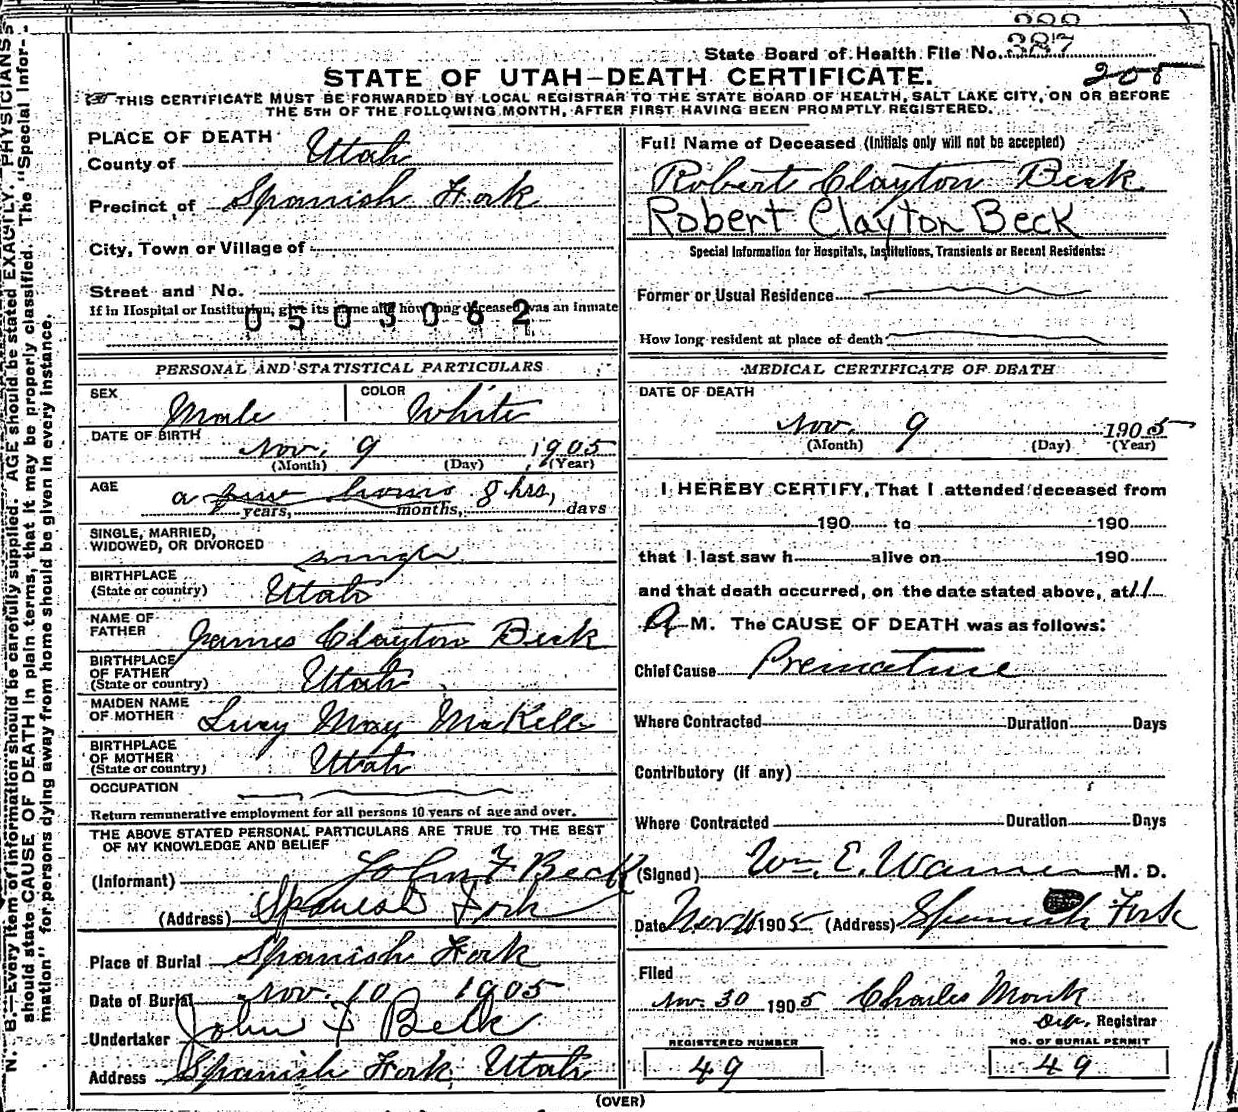 State Board of Health File No. 387
205
STATE OF UTAH—DEATH CERTIFICATE.
THIS CERTIFICATE MUST BE FORWARDED BY LOCAL REGISTRAR TO THE STATE BOARD OF HEALTH, SALT LAKE CITY, ON OR BEFORE
THE 5TH OF THE FOLLOWING MONTH, AFTER FIRST HAVING BEEN PROMPTLY REGISTERED.
PLACE OF DEATH
County of Utah
Precinct of Spanish Fork
City, Town or Village of
Street and No.
If in Hospital or Institution, give its name and how long deceased was an inmate
0503062
PERSONAL AND STATISTICAL PARTICULARS
SEX Male COLOR White
DATE OF BIRTH Nov. 9 1905
(Month) (Day) (Year)
AGE a few hours 8 hrs,
years, months, days
SINGLE, MARRIED,
WIDOWED, OR DIVORCED single
BIRTHPLACE
(State or country) Utah
NAME OF
FATHER James Clayton Beck
BIRTHPLACE
OF FATHER
(State or country) Utah
MAIDEN NAME
OF MOTHER Lucy May McKell
BIRTHPLACE
OF MOTHER
(State or country) Utah
OCCUPATION
Return remunerative employment for all persons 10 years of age and over.
THE ABOVE STATED PERSONAL PARTICULARS ARE TRUE TO THE BEST
OF MY KNOWLEDGE AND BELIEF
(Informant) John F Beck
(Address) Spanish Fork
Place of Burial Spanish Fork
Date of Burial Nov. 10 1905
Undertaker John F Beck
Address Spanish Fork, Utah
Full Name of Deceased (Initials only will not be accepted)
Robert Clayton Beck
Robert Clayton Beck
Special Information for Hospitals, Institutions, Transients or Recent Residents:
Former or Usual Residence
How long resident at place of death
MEDICAL CERTIFICATE OF DEATH
DATE OF DEATH
Nov. 9 1905
(Month) (Day) (Year)
I HEREBY CERTIFY, That I attended deceased from
190 to 190
that I last saw h alive on 190
and that death occurred, on the date stated above, at 11
A M. The CAUSE OF DEATH was as follows:
Chief Cause Premature
Where Contracted Duration Days
Contributory (if any)
Where Contracted Duration Days
(Signed) Wm. E. Warner M. D.
Date Nov 1905 (Address) Spanish Fork
Filed
Nov. 30 1905 Charles Monk
Dep. Registrar
REGISTERED NUMBER NO. OF BURIAL PERMIT
49 49
(OVER)
N. B.—Every item of information should be carefully supplied. AGE should be stated EXACTLY. PHYSICIANS
should state CAUSE OF DEATH in plain terms, that it may be properly classified. The "Special Infor-
mation" for persons dying away from home should be given in every instance.